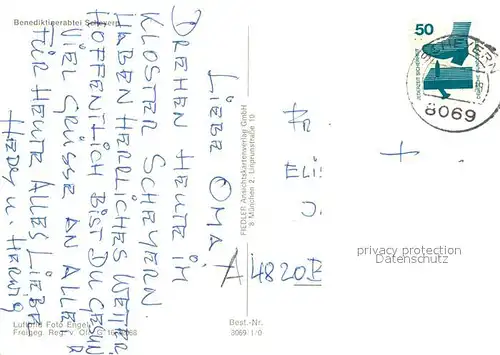 Benediktinerabtei Scheyern
LIEBE OMA!
DREHEN HEUTE IM
KLOSTER SCHEYERN.
HABEN HERRLICHES WETTER.
HOFFENTLICH BIST DU GESUND
VIELE GRÜSSE AN ALLE
FÜR HEUTE ALLES LIEBE
HEDY U. HERWIG
FIEDLER Ansichtskartenverlag GmbH
8 München 2, Linprunstraße 10
50
SCHEYERN
8069
FR.
ELI
J.
A 4820
privacy protection
Datenschutz
Luftbild Foto Engel
Freigeg. Reg. v. Obb. G
Best.-Nr.
8069 1/0